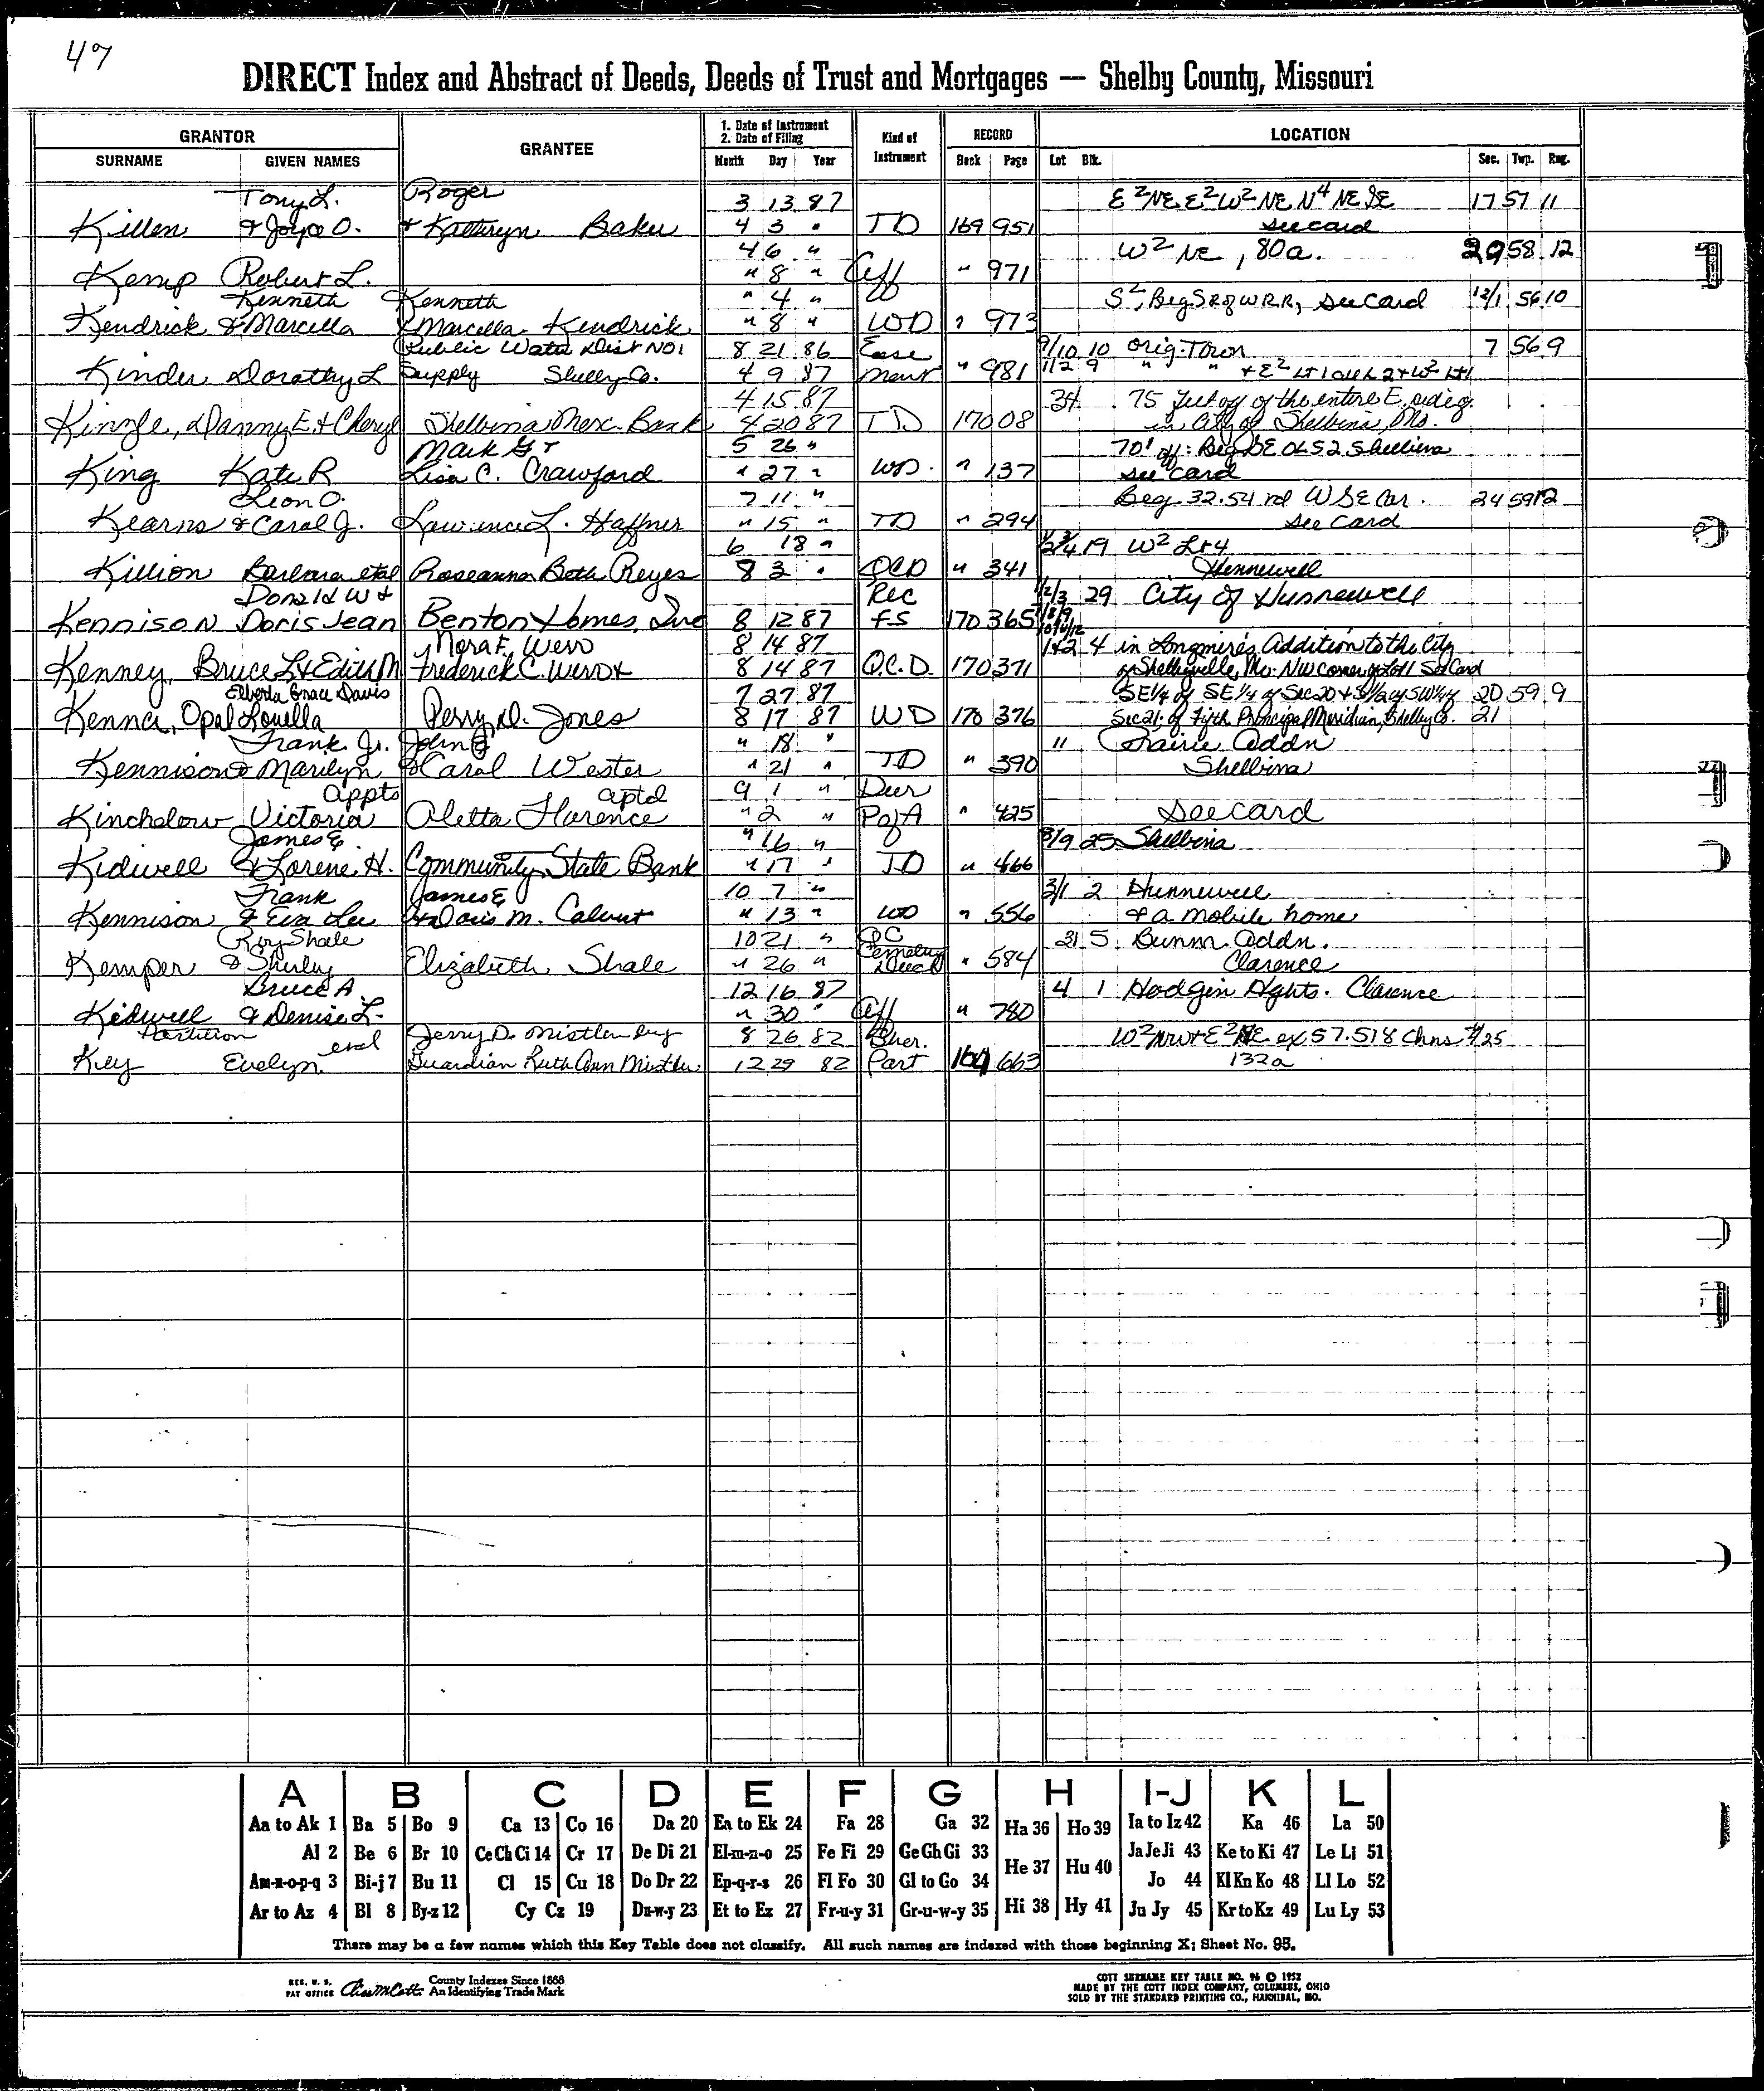 47
DIRECT Index and Abstract of Deeds, Deeds of Trust and Mortgages — Shelby County, Missouri
GRANTOR GRANTEE 1. Date of Instrument 2. Date of Filing Kind of Instrument RECORD LOCATION
SURNAME GIVEN NAMES Month Day Year Book Page Lot Blk. Sec. Twp. Rng.
Tony L. Roger 3 13 87 E²NE E²W²NE N⁴ NE SE 17 57 11
Killen & Joyce O. & Katheryn Baker 4 3 " TD 169 951 see card
4 6 " W² NE, 80a. 29 58 12
Kemp Robert L. " 8 " Aff " 971
Kenneth Kenneth " 4 " S², Beg S R of W R.R, see Card 12/1 56 10
Kendrick & Marcella & Marcella Kendrick " 8 " WD " 973
Public Water Dist NO1 8 21 86 Ease 9/10 10 Orig. Town 7 56 9
Kinder Dorothy L Supply Shelby Co. 4 9 87 ment " 981 1/2 9 " " + E² Lt 1
4 15 87 34 75 feet off of the entire E. side of
Kinzle, Danny E. & Cheryl Shelbina Merc. Bank 4 20 87 TD 170 08 in City of Shelbina, Mo.
Mark G & 5 26 " 70' off: Beg SE OL 52 Shelbina
King Kate R Lisa C. Crawford " 27 " WD. " 137 see card
Leon O. 7 11 " Beg. 32.54 rd W SE Cor. 24 59 12
Kearns & Carol J. Lawrence L. Haffner " 15 " TD " 294 see Card
6 18 " 1/2 3/4 19 W² Lt 4
Killion Barbara etal Roseanna Beth Reyes 8 3 " QCD " 341 Hunnewell
Donald W & Rec 1/2/3 29 City of Hunnewell
Kennison Doris Jean Benton Homes, Inc 8 12 87 FS 170 365 7/8/9 10/11/12
Nora F. Weir 8 14 87 1&2 4 in Longmire's Addition to the City
Kenney, Bruce L & Edith M Frederick C. Weir & 8 14 87 Q.C.D. 170 371 of Shelbyville, Mo. NW corner of Lot 1 See Card
Elberta Grace Davis 7 27 87 SE1/4 of SE 1/4 of Sec 20 & S1/2 of SW1/4 of 20 59 9
Kenner, Opal Louella Perry D. Jones 8 17 87 WD 170 376 Sec 21 of Fifth Principal Meridian, Shelby Co. 21
Frank Jr. John E " 18 " 11 Prairie Addn
Kennison & Marilyn & Carol Wester " 21 " TD " 390 Shelbina
appts aptd 9 1 " Dur
Kinchelow Victoria Aletta Florence " 2 " P of A " 425 see card
James E. " 16 " 8/9 25 Shelbina
Kidwell & Lorene H. Community State Bank " 17 " TD " 466
Frank James E 10 7 " 3/1 2 Hunnewell
Kennison & Eva Lee & Doris M. Calvert " 13 " WD " 556 & a mobile home
Roy Shale 10 21 " QC 31 5 Bunm Addn.
Kemper & Shirley Elizabeth Shale " 26 " Cemetery Deed " 584 Clarence
Bruce A. 12 16 87 4 1 Hodgin Hghts. Clarence
Kidwell & Denise L. " 30 " Aff " 780
Partition etal Jerry D. Mistler by 8 26 82 Sher. W² NW & E² NE ex 57.518 Chns
Key Evelyn Guardian Ruth Ann Mistler 12 29 82 Part 164 663 132a
A B C D E F G H I-J K L
Aa to Ak 1 Ba 5 Bo 9 Ca 13 Co 16 Da 20 Ea to Ek 24 Fa 28 Ga 32 Ha 36 Ho 39 Ia to Iz 42 Ka 46 La 50
Al 2 Be 6 Br 10 Ce Ch Ci 14 Cr 17 De Di 21 El-m-n-o 25 Fe Fi 29 Ge Gh Gi 33 He 37 Hu 40 Ja Je Ji 43 Ke to Ki 47 Le Li 51
Am-n-o-p-q 3 Bi-j 7 Bu 11 Cl 15 Cu 18 Do Dr 22 Ep-q-r-s 26 Fl Fo 30 Gl to Go 34 Jo 44 Kl Kn Ko 48 Ll Lo 52
Ar to Az 4 Bl 8 By-z 12 Cy Cz 19 Du-w-y 23 Et to Ez 27 Fr-u-y 31 Gr-u-w-y 35 Hi 38 Hy 41 Ju Jy 45 Kr to Kz 49 Lu Ly 53
There may be a few names which this Key Table does not classify. All such names are indexed with those beginning X; Sheet No. 95.
REG. U. S. PAT OFFICE County Indexes Since 1888 An Identifying Trade Mark
COTT SURNAME KEY TABLE NO. 96 © 1952
MADE BY THE COTT INDEX COMPANY, COLUMBUS, OHIO
SOLD BY THE STANDARD PRINTING CO., HANNIBAL, MO.